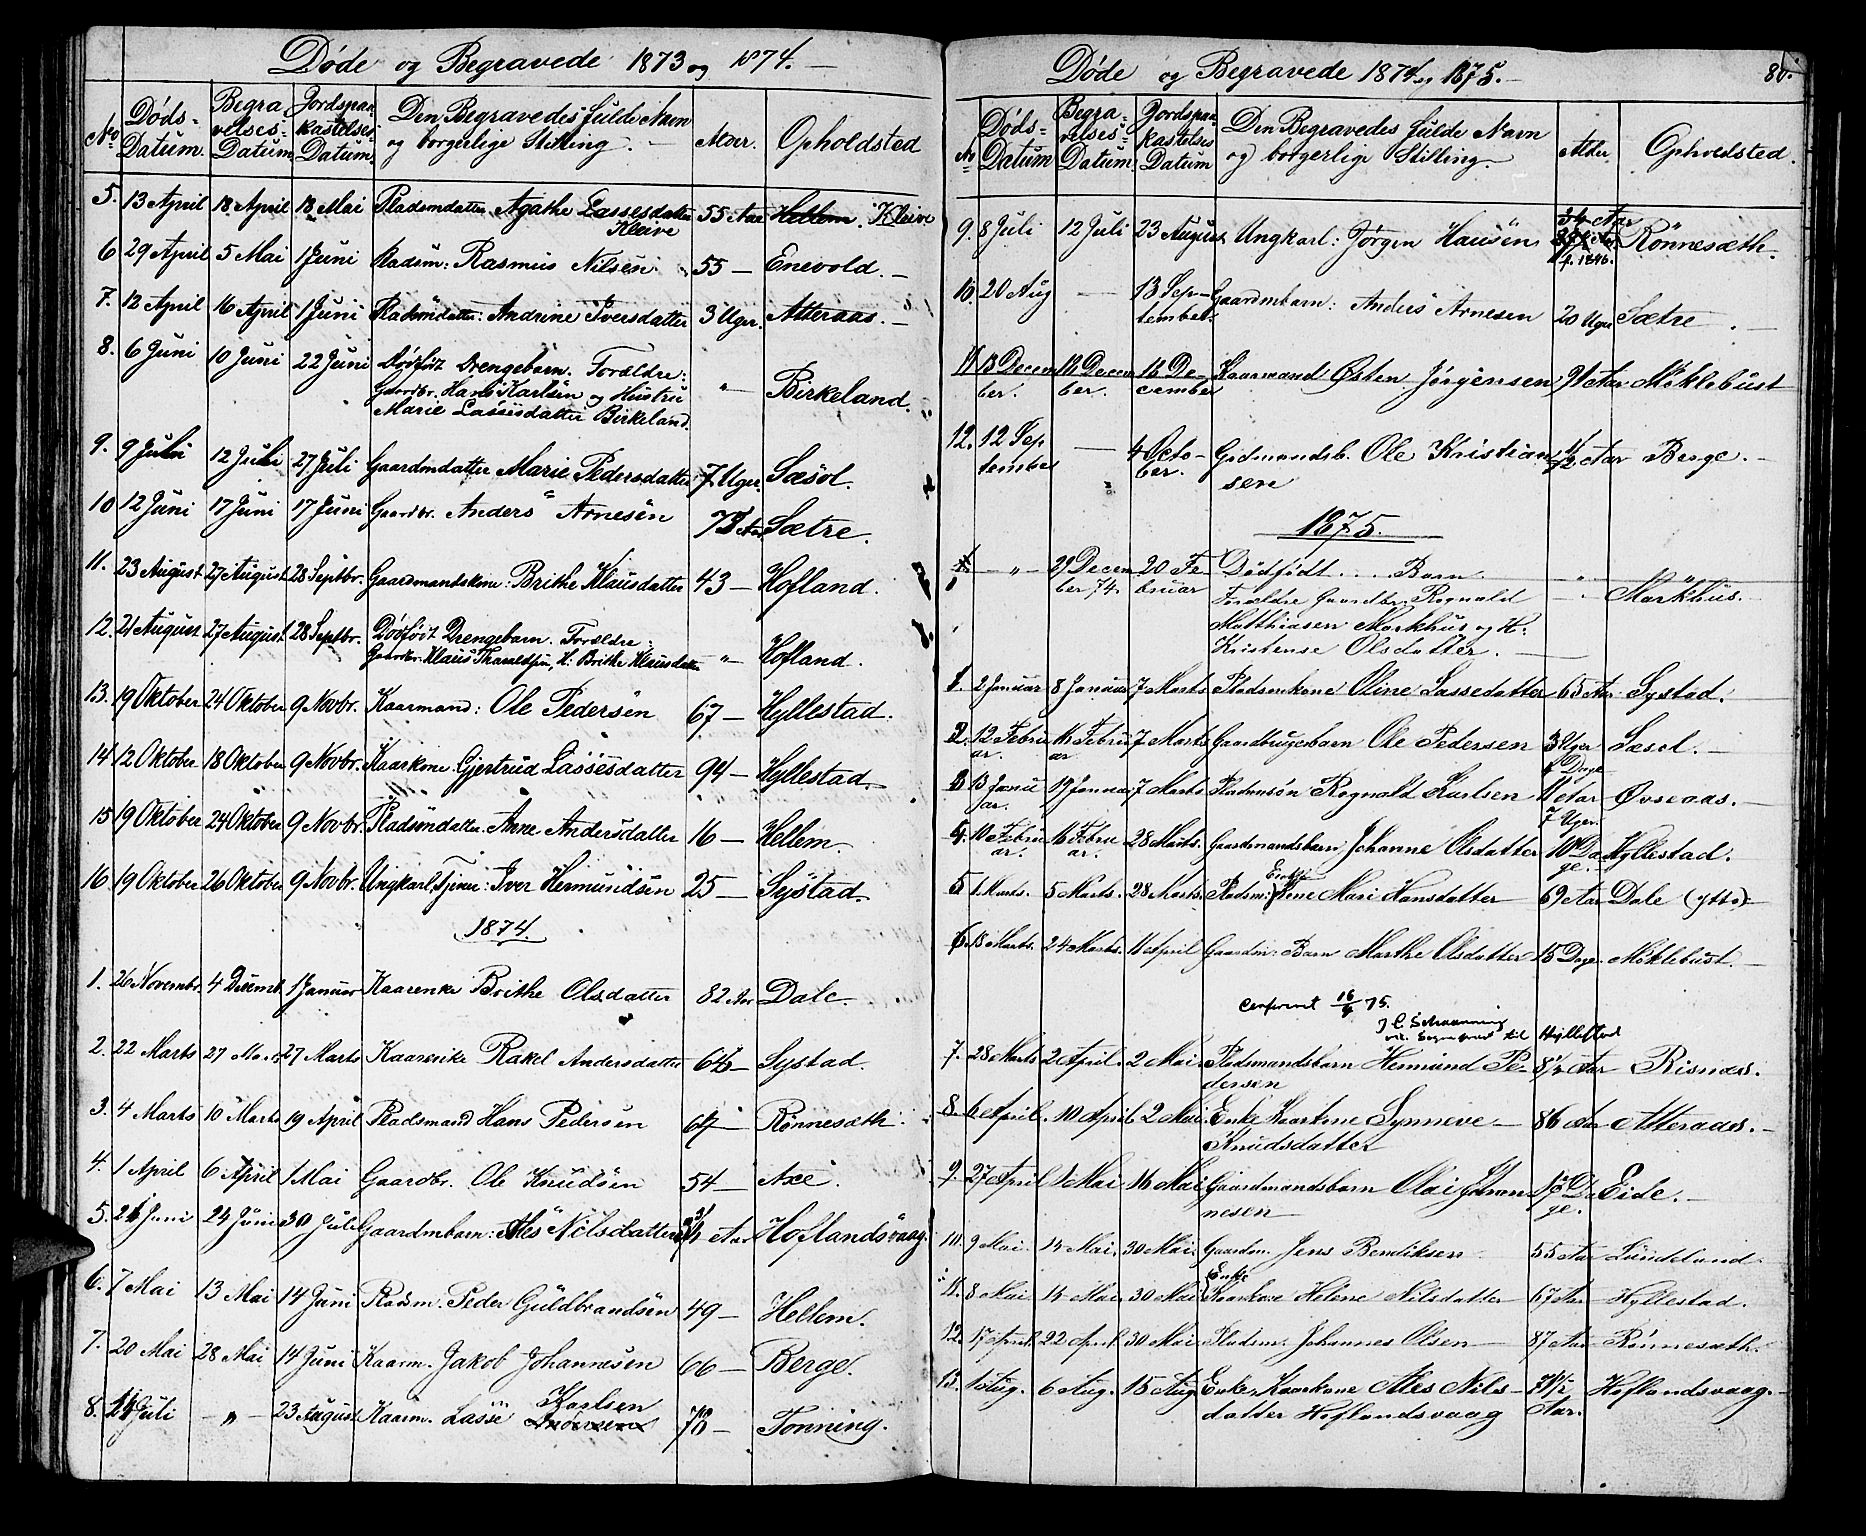 Døde og Begravede 1873 og 1874. —
No Døds-Datum. Begravelses-Datum Jordspaakastelses Datum. Den Begravedes fulde Navn og borgerlige Stilling. — Alder. Opholdsted
5. 13 April 18 April 18 Mai Pladsmdatter Agathe Lassesdatter Kleive 55 Aar Hellem. Kleive
6 29 April 5 Mai 1 Juni Pladsm: Rasmus Nilsen 55 — Enevold. —
7. 12 April 16 April 1 Juni Pladsmdatter: Andrine Iversdatter 3 Uger. Atteraas. —
8. 6 Juni 10 Juni 22 Juni Dødfødt Drengebarn. Forældre:
Gaardbr. Hans Karlsen og Hustru " Birkeland.
Marie Lassesdatter Birkeland.
9. 9 Juli 12 Juli 27 Juli Gaardmdatter Marie Pedersdatter 7 Uger. Sæsol.
10 12 Juni 17 Juni 17 Juni Gaardbr. Anders Arnesen 73 Aar Sætre.
11. 23 August 27 August 28 Septbr. Gaardmandskone: Brithe Klausdatter 43 — Hofland.
12. 21 August 27 August 28 Septbr. Dødfødt Drengebarn. Forældre:
Gaardbr. Klaus H: Brithe Klausdatter — " Hofland.
13. 19 Oktober 24 Oktober 9 Novbr. Kaarmand: Ole Pedersen 67 — Hyllestad.
14 12 Oktober 18 Oktober 9 Novbr. Kaarkone. Gjertrud Lassesdatter 94 — Hyllestad.
15 19 Oktober 24 Oktober 9 Novbr. Pladsmdatter. Anne Andersdatter 16 — Hellem.
16 19 Oktober 26 Oktober 9 Novbr. Ungkarl, Tjener: Iver Hermundsen 25 — Systad.
1874.
1. 26 Novembr. 4 Decemb. 1 Januar Kaarenke Brithe Olsdatter 82 Aar Dale.
2. 22 Marts 27 Marts 27 Marts Kaarenke Rakel Andersdatter Systad.
3. 4 Marts 10 Marts 19 April Pladsmand Hans Pedersen Rønnesæth.
4. 1 April 6 April 1 Mai Gaardbr. Ole Knudsen 54 — Axe.
5. 21 Juni 24 Juni 30 Juli Gaardmbarn: Ales Nilsdatter Aar Hoflandsvaag.
6. 7 Mai 13 Mai 14 Juni Pladsm. Peder Guldbrandsen 49 — Hellem.
7. 20 Mai 28 Mai 14 Juni Kaarm. Jakob Johannesen 66 — Berge.
8. Juli — " — 23 August Kaarm. Lasse Karlsen 78 — Tonning.
Døde og Begravede 1874 og 1875. — 80.
No Døds-Datum Begravelses-Datum. Jordspaakastelses Datum Den Begravedes fulde Navn og borgerlige Stilling. — Alder. Opholdsted.
9. 8 Juli 12 Juli 23 August Ungkarl: Jørgen Hansen Aar f. 1846. Rønnesæth.
10. 20 Aug — 13 September. Gaardmbarn: Anders Arnesen 20 Uger Sætre. —
11. 13 December. 18 December. 18 December Kaarmand Østen Jørgensen 91 Aar Møklebust
12. 12 September — 4 October. Grdmandsb. Ole Kristiansen 1/2 Aar Berge. —
1875.
— " — 29 December 74. 20 Februar Dødfødt .... Barn. — " —
Forældre Gaardbr. Rognald — Markhus.
Matthiasen Markhus og H:
Kristense Olsdatter. —
1. 2 Januar 8 Januar 7 Marts Pladsmkone Oline Lassedatter — 65 Aar Systad.
2. 12 Februar. 16 Februar 7 Marts Gaardbrugebarn Ole Pedersen 3 Uger Dage Sæsol. —
3. 13 Januar. 19 Januar 7 Marts Pladsmsøn Rognald Karlsen 11 Aar 7 Uger. Øvreaas. —
4. 10 Februar. 16 Februar. 28 Marts. Gaardmandsbarn Johanne Olsdatter 10 Dage. Hyllestad.
5. 1 Marts. 5 Marts. 28 Marts. Pladsm: Enke Kone Mari Hansdatter — 69 Aar Dale (Ytto)
6. 18 Marts. 24 Marts. 11 April Gaardm. Barn Marthe Olsdatter 15 Dage. Møklebust. —
Conferert 16/4 75.
J C Schaanning
vic. Sogneprest til Hyllestad
7. 28 Marts 2 April. 2 Mai. Pladsmandsbarn Hermund Pedersen 8 1/2 Aar Risnæs.
8. 6 April. 10 April. 2 Mai. Enke Kaarkone Synneve — 86 Aar Atteraas. —
Knudsdatter
9. 27 April 1 Mai 16 Mai Gaardmandsbarn Olai Johannesen Dage. Eide. —
10. 9 Mai. 14 Mai. 30 Mai. Gaardm. Jens Bendiksen — 55 Aar Lundeland.
11. 8 Mai 14 Mai 30 Mai Enke Kaarkone Helene Nilsdatter — 67 Aar Hyllestad.
12. 17 April. 22 April. 30 Mai. Pladsm. Johannes Olsen — 87 Aar Rønnesæth.
13. 1 Aug. 6 Aug. 15 Aug. Enke, Kaarkone Ales Nilsdatter Hoflandsvaag Aar. Hoflandsvaag. —